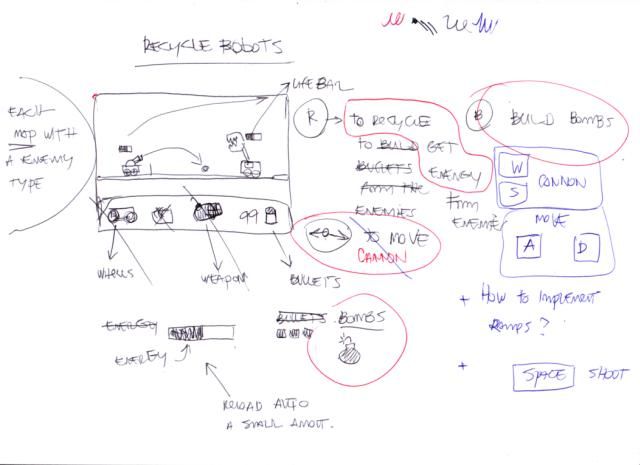 RECYCLE BOBOTS
LIFE BAR
EACH
MAP WITH
A ENEMY
TYPE
R
TO RECYCLE
TO BUILD GET
BULLETS ENERGY
FORM THE FROM
ENEMIES ENEMIES
TO MOVE
CANNON
B
BUILD BOMBS
W
S
CANNON
MOVE
A D
99
WHEELS
WEAPON
BULLETS
ENERGY
ENERGY
BULLETS BOMBS
RELOAD AUTO
A SMALL AMOUT.
+ HOW TO IMPLEMENT
RAMPS?
+ SPACE SHOOT